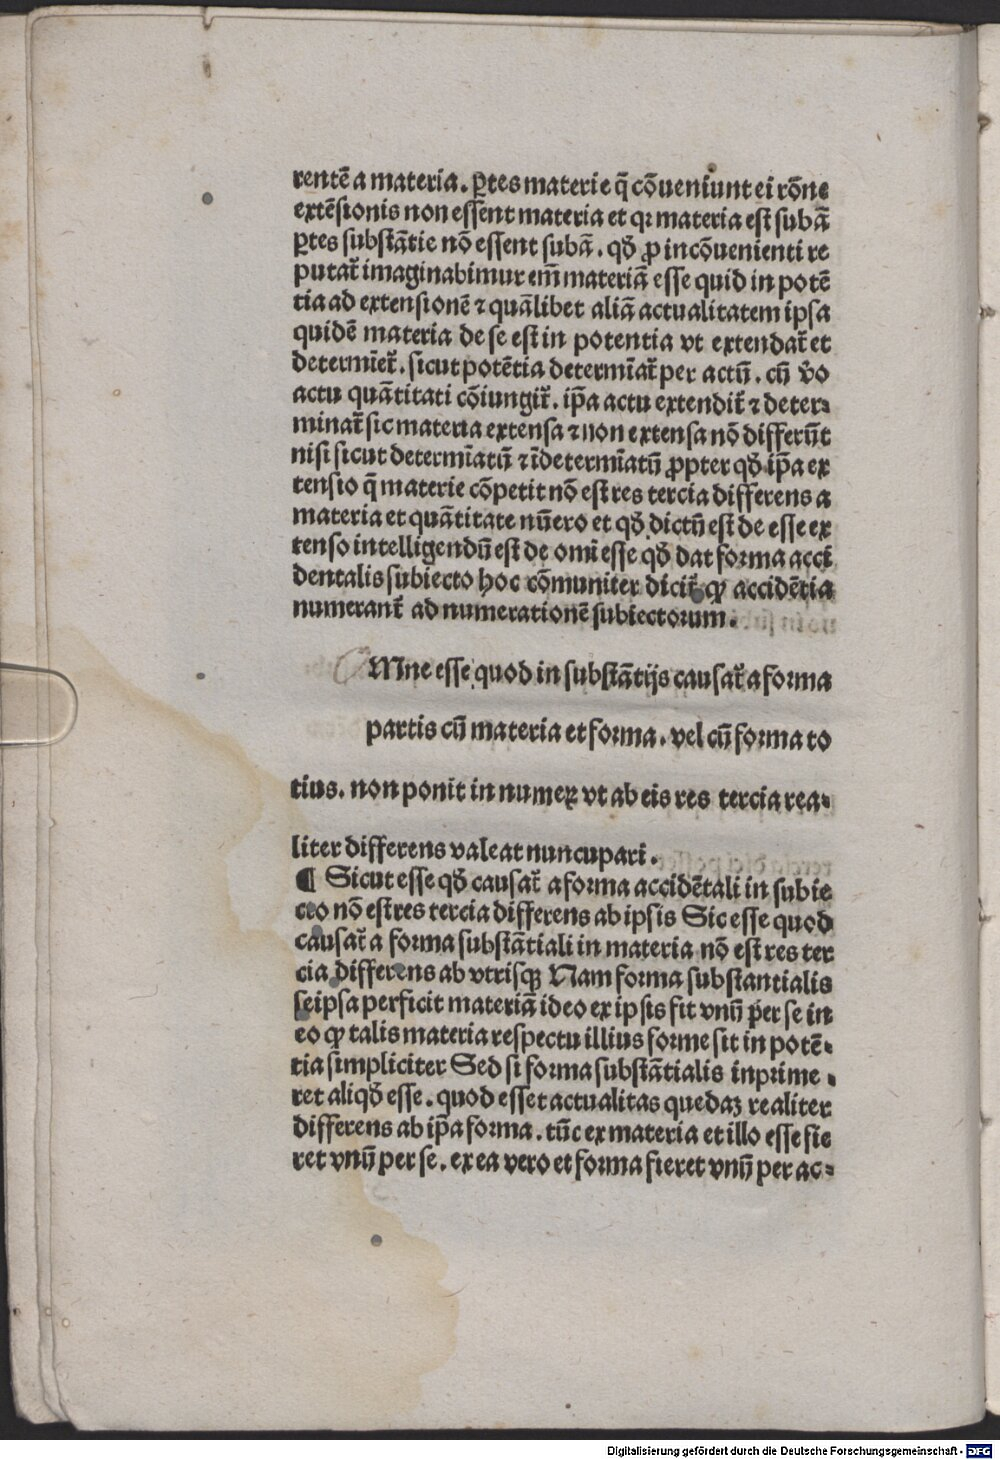 rentē a materia. ꝑtes materie q̄ cōueniunt ei rōne
extēsionis non essent materia et qꝛ materia est subā
ꝑtes substātie nō essent subā. qḋ ꝓ incōuenienti re
putat᷑ imaginabimur em̄ materiā esse quid in potē
tia ad extensionē ⁊ quālibet aliā actualitatem ipsa
quidē materia de se est in potentia vt extendat᷑ et
determīet᷑. sicut potētia determīat᷑ per actū. cū v̊o
actu quātitati cōiungit᷑. ip̄a actu extendit᷑ ⁊ deter⸗
minat᷑ sic materia extensa ⁊ non extensa nō differūt
nisi sicut determīatū ⁊ īdetermīatū ꝓpter qḋ ip̄a ex
tensio q̄ materie cōpetit nō est res tercia differens a
materia et quātitate nūero et qḋ dictū est de esse ex
tenso intelligendū est de omī esse qḋ dat forma acci
dentalis subiecto hoc cōmuniter dicit᷑ ꝙ accidētia
numerant᷑ ad numerationē subiectorum.
Mne esse quod in substātijs causat᷑ a forma
partis cū materia et forma. vel cū forma to
tius. non ponit in numeꝝ vt ab eis res tercia rea⸗
liter differens valeat nuncupari.
¶ Sicut esse qḋ causat᷑ a forma accidētali in subie
cto nō est res tercia differens ab ipsis Sic esse quod
causat᷑ a forma substātiali in materia nō est res ter
cia differens ab vtrisqꝫ Nam forma substantialis
seipsa perficit materiā ideo ex ipsis fit vnū per se in
eo ꝙ talis materia respectu illius forme sit in potē⸗
tia simpliciter Sed si forma substātialis inprime⸗
ret aliqḋ esse. quod esset actualitas quedaꝫ realiter
differens ab ip̄a forma. tūc ex materia et illo esse fie
ret vnū per se. ex ea vero et forma fieret vnū per ac⸗
Digitalisierung gefördert durch die Deutsche Forschungsgemeinschaft - DFG